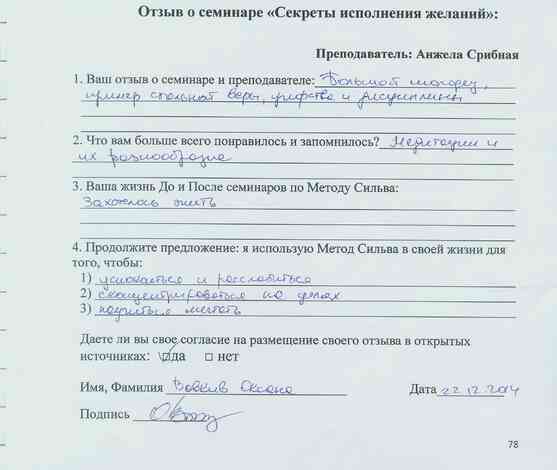 Отзыв о семинаре «Секреты исполнения желаний»:
Преподаватель: Анжела Срибная
1. Ваш отзыв о семинаре и преподавателе: Большой молодец,
пример стальной веры, упорства и дисциплины
2. Что вам больше всего понравилось и запомнилось? Медитации и
их разнообразие
3. Ваша жизнь До и После семинаров по Методу Сильва:
Захотелось жить
4. Продолжите предложение: я использую Метод Сильва в своей жизни для
того, чтобы:
1) успокоиться и расслабиться
2) сконцентрироваться на целях
3) научиться мечтать
Даете ли вы свое согласие на размещение своего отзыва в открытых
источниках: да нет
Имя, Фамилия Вовкив Оксана Дата 22.12.2014
Подпись
78